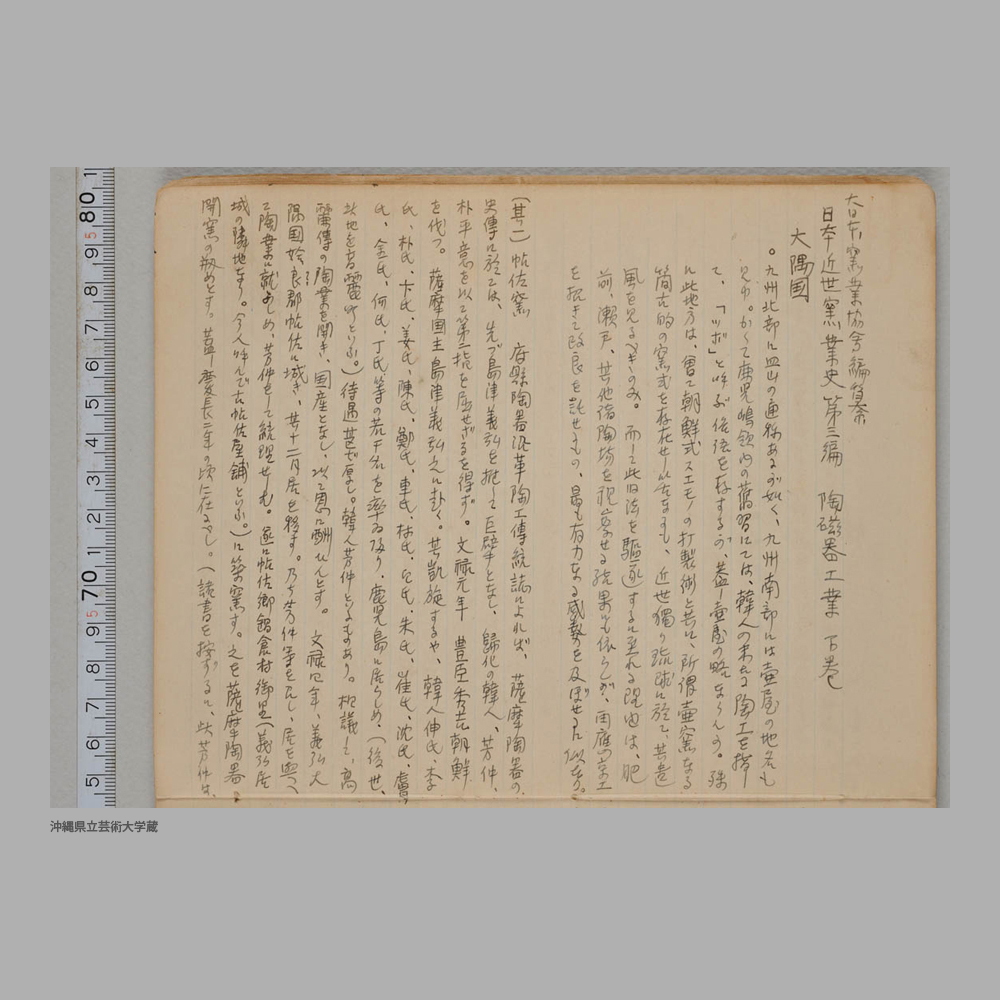 大日本窯業協会編纂
日本近世窯業史第三編 陶磁器工業 下巻
大隅国
。九州北部に皿山の通称あるが如く、九州南部には壷屋の地名も
見ゆ。かくて鹿児嶋領内の旧習にては、韓人の末たる陶工を指し
て、「ツボ」と呼ぶ俗法を存するが、蓋し壷屋の略ならんのう。殊
に此地方は、曾て朝鮮式スエモノの打製術と共に、所謂壷窯なる
簡古的の窯式を存在せし処なるも、近世独り琉球に於て、其遺
風を見るべきのみ。而して此旧法を駆逐するに至れる理由は、肥
前、瀬戸、其他諸陶場を視察せる結果にも依らしが、両鹿の窯工
を招きて改良を託せもの、最も有力なる感動を及ぼせるに似たり。
(其二)帖佐窯 府県陶器沿革陶工傳統誌によれば、薩摩陶器の
史傳に於ては、先づ島津義弘を推して巨擘となし、歸化の韓人、芳仲、
朴平意を以て第二指を屈せざるを得ず。文禄元年 豊臣秀吉朝鮮
を伐つ。薩摩国主島津義弘之に赴く。其凱旋するや、韓人伸氏、李
氏、朴氏、卞氏、姜氏、陳氏、鄭氏、車氏、林氏、白氏、朱氏、崔氏、沈氏、盧
氏、金氏、何氏、丁氏等の若干名を率ゐ返り、鹿児島に居らしめ、(後世、
此地を高麗町といふ。)待遇甚だ厚し。韓人芳仲といふものあり。相議し、高
麗傳の陶業を開き、国産となし、以て恩に酬ひんとす。 文禄四年、義弘大
隅国姶良郡帖佐に城き、其十二月居を移す。乃ち芳仲等を召し、居を與へ
て陶業に就かしめ、芳仲をして統理せしむ。遂に帖佐郷鍋倉村御里(義弘居
城の隣地なり。今人呼んで古帖佐屋舗といふ。)に築窯す。之を薩摩陶器
開窯の初めとす。蓋し慶長二年の頃に在るべし。(諸書を按ずるに、此芳仲は、
80
70
沖縄県立芸術大学蔵